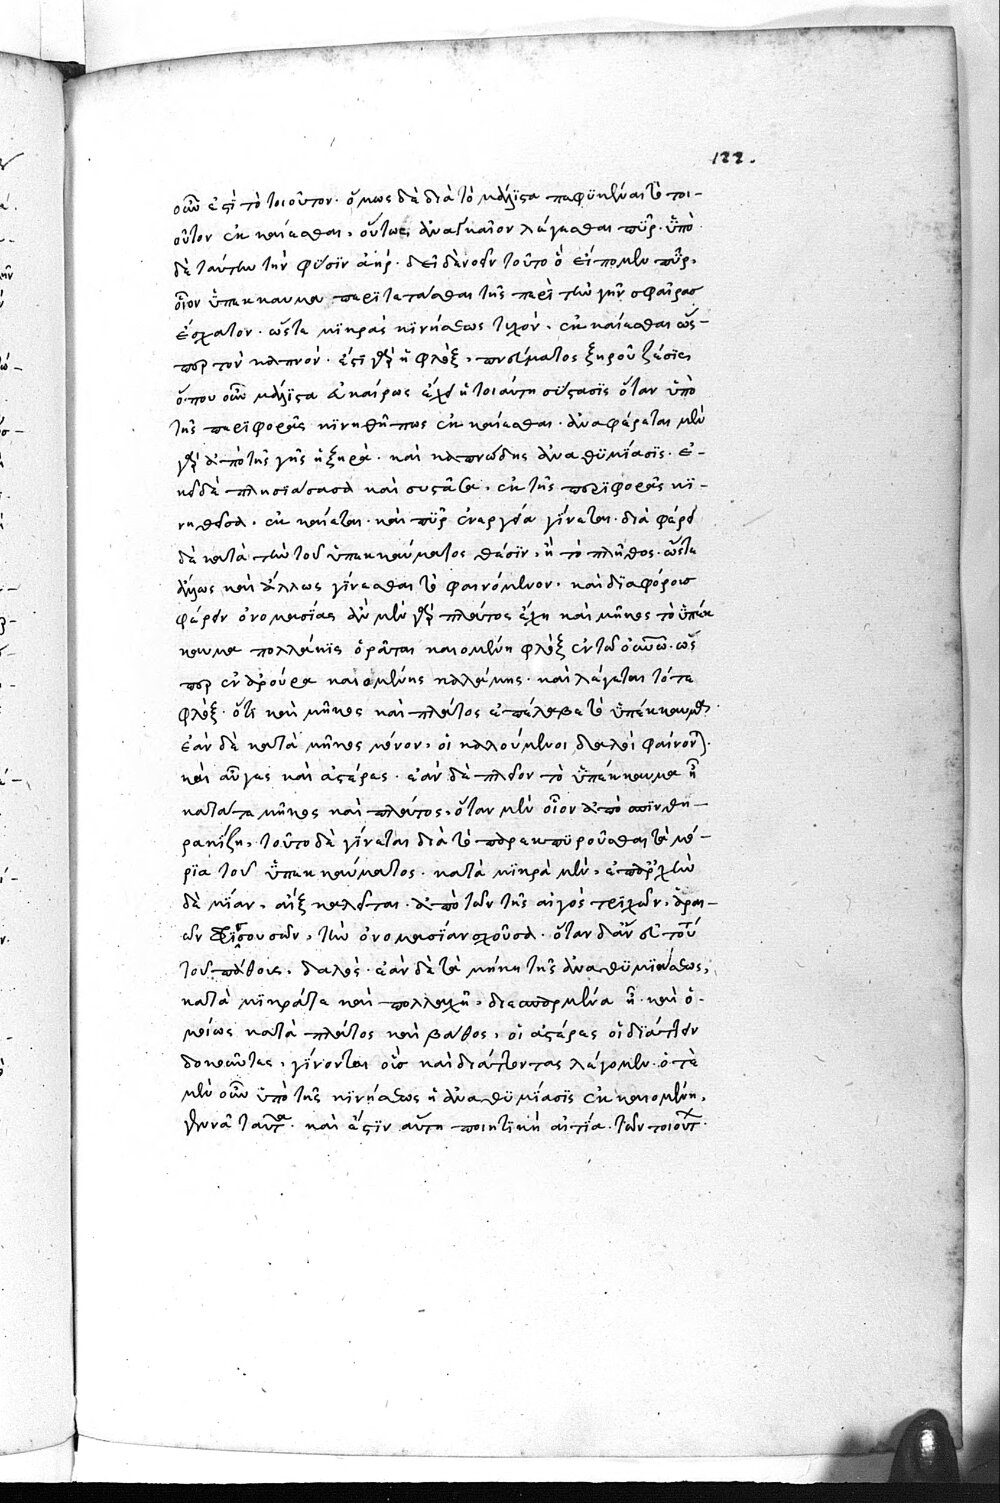 122.
οὖν ἐστὶ τὸ τοιοῦτον. ὅμως δὲ διὰ τὸ μάλιστα πεφυκέναι τὸ τοι-
οῦτον ἐκκαίεσθαι, οὕτως ἀναγκαῖον λέγεσθαι πῦρ. ὑπὸ
δὲ ταύτην τὴν φύσιν ἀήρ. δεῖ δὲ νοεῖν τοῦτο ὃ εἴπομεν πῦρ,
οἷον ὑπέκκαυμα περιτετάσθαι τῆς περὶ τὴν γῆν σφαίρας
ἔσχατον. ὥστε μικρᾶς κινήσεως τυχὸν, ἐκκαίεσθαι ὥσ-
περ τὸν καπνόν. ἔστι γὰρ ἡ φλὸξ, πνεύματος ξηροῦ ζέσις
ὅπου οὖν μάλιστα εὐκαίρως ἔχει ἡ τοιαύτη σύστασις ὅταν ὑπὸ
τῆς περιφορᾶς κινηθῇ πως ἐκκαίεσθαι. ἀναφέρεται μὲν
γὰρ ἀπὸ τῆς γῆς ἡ ξηρὰ. καὶ καπνώδης ἀναθυμίασις. ἐ-
κεῖ δὲ πλησιάσασα καὶ συστᾶσα, ἐκ τῆς περιφορᾶς κι-
νηθεῖσα, ἐκκαίεται. καὶ πῦρ ἐνεργείᾳ γίνεται. διαφέρει
δὲ κατὰ τὴν τοῦ ὑπεκκαύματος θέσιν, ἢ τὸ πλῆθος. ὥστε
ἄλλως καὶ ἄλλως γίνεσθαι τὸ φαινόμενον. καὶ διαφόρους
φέρειν ὀνομασίας ἂν μὲν γὰρ πλάτος ἔχῃ καὶ μῆκος τὸ ὑπέκ
καυμα πολλάκις ὁρᾶται καιομένη φλὸξ ἐν τῷ οὐρανῷ. ὥσ
περ ἐν ἀρούρᾳ καιομένης καλάμης. καὶ λέγεται τότε
φλόξ. ὅτι καὶ μῆκος καὶ πλάτος ἐπέλαβε τὸ ὑπέκκαυμα.
ἐὰν δὲ κατὰ μῆκος μόνον, οἱ καλούμενοι δαλοὶ φαίνονται.
καὶ αἶγες καὶ ἀστέρες. ἐὰν δὲ πλέον τὸ ὑπέκκαυμα ᾖ
κατά τε μῆκος καὶ πλάτος, ὅταν μὲν οἷον ἀποσπινθη-
ρακίζῃ, τοῦτο δὲ γίνεται διὰ τὸ παρεκπυροῦσθαι τὰ μό-
ρια τοῦ ὑπεκκαύματος. κατὰ μικρὰ μὲν, ἐπ' ἀρχὴν
δὲ μίαν, αἴξ καλεῖται. ἀπὸ τῶν τῆς αἰγὸς τριχῶν, ἀραι-
τοῦ πάθους, δαλός. ἐὰν δὲ τὰ μήκη τῆς ἀναθυμιάσεως,
κατὰ μικρά τε καὶ πολλαχῇ, διεσπαρμένα ᾖ. καὶ ὁ-
μοίως κατὰ πλάτος καὶ βάθος, οἱ ἀστέρες οἱ διάττειν
δοκοῦντες, γίνονται οὓς καὶ διάττοντας λέγομεν. ὁτὲ
μὲν οὖν ὑπὸ τῆς κινήσεως ἡ ἀναθυμίασις ἐκκαιομένη,
γεννᾷ ταῦτα. καὶ ἔστιν αὕτη ποιητικὴ αἰτία. τῶν τοιούτων.